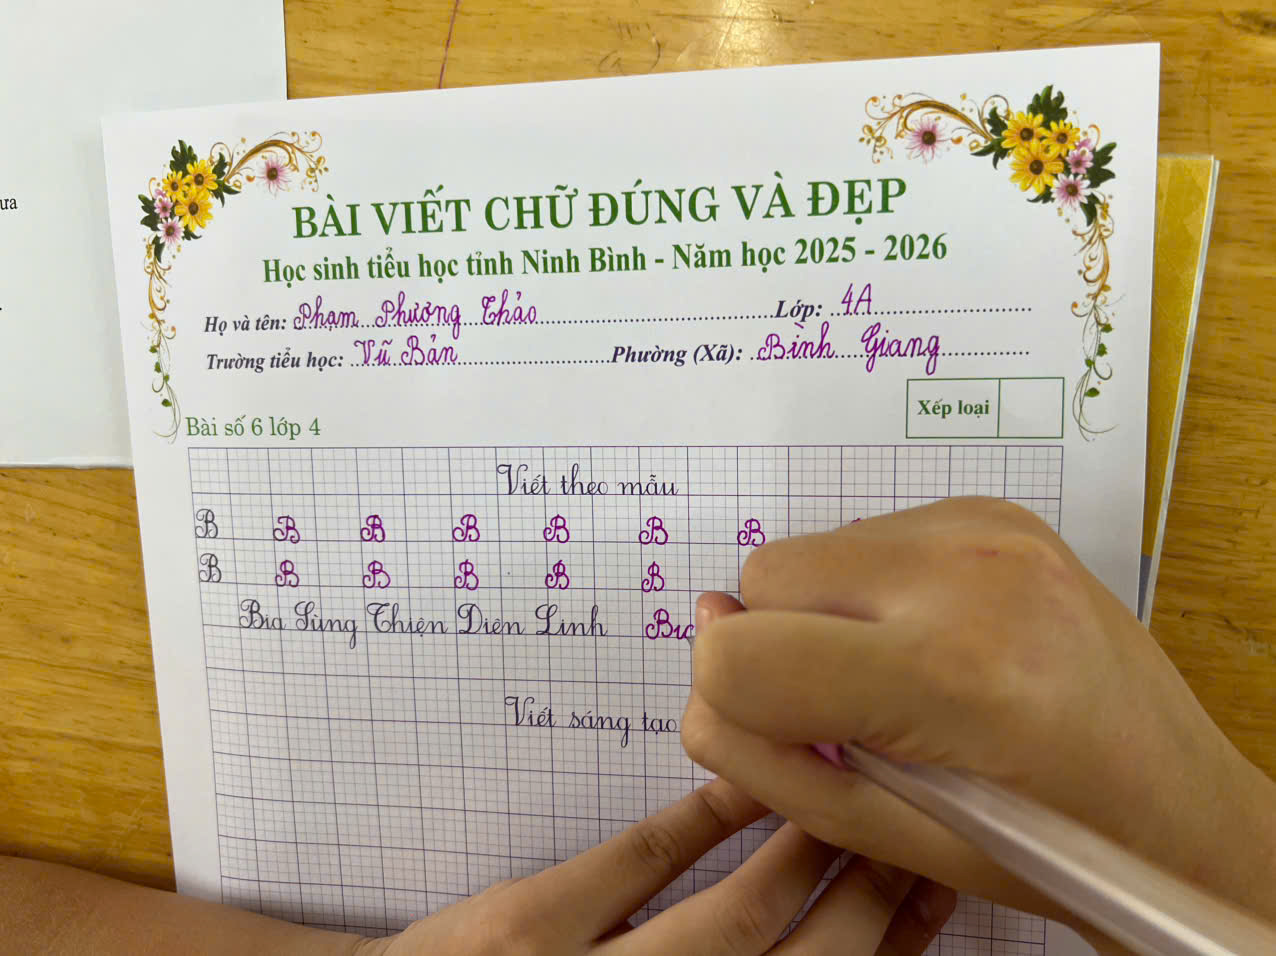 ưa
BÀI VIẾT CHỮ ĐÚNG VÀ ĐẸP
Học sinh tiểu học tỉnh Ninh Bình - Năm học 2025 - 2026
Họ và tên: Phạm Phương Thảo Lớp: 4A
Trường tiểu học: Vũ Bản Phường (Xã): Bình Giang
Xếp loại
Bài số 6 lớp 4
Viết theo mẫu
B B B B B B B
B B B B B B
Bia Sùng Thiện Diên Linh Bia
Viết sáng tạo